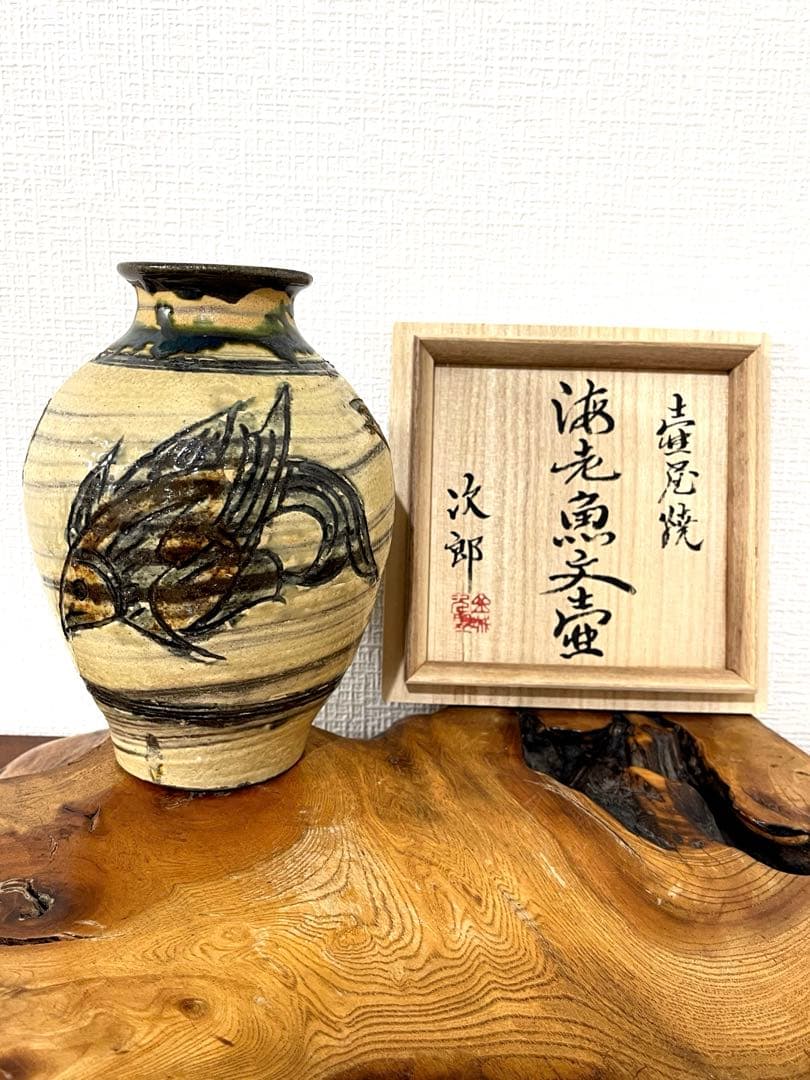 壷屋焼
海老魚文壷
次郎